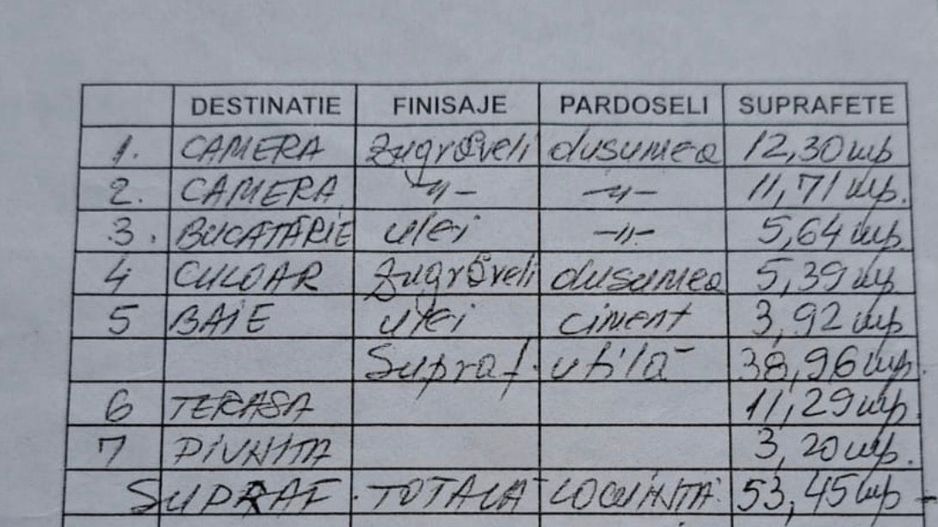 DESTINATIE FINISAJE PARDOSELI SUPRAFETE
1. CAMERA zugrăveli dusumea 12,30 mp
2. CAMERA -"- -"- 11,71 mp.
3. BUCATĂRIE ulei -"- 5,64 mp.
4 CULOAR zugrăveli dusumea 5,39 mp.
5 BAIE ulei ciment 3,92 mp
Supraf. utilă 38,96 mp.
6 TERASA 11,29 mp.
7 PIVNITA 3,20 mp.
SUPRAF. TOTALĂ LOCUINTĂ 53,45 mp -